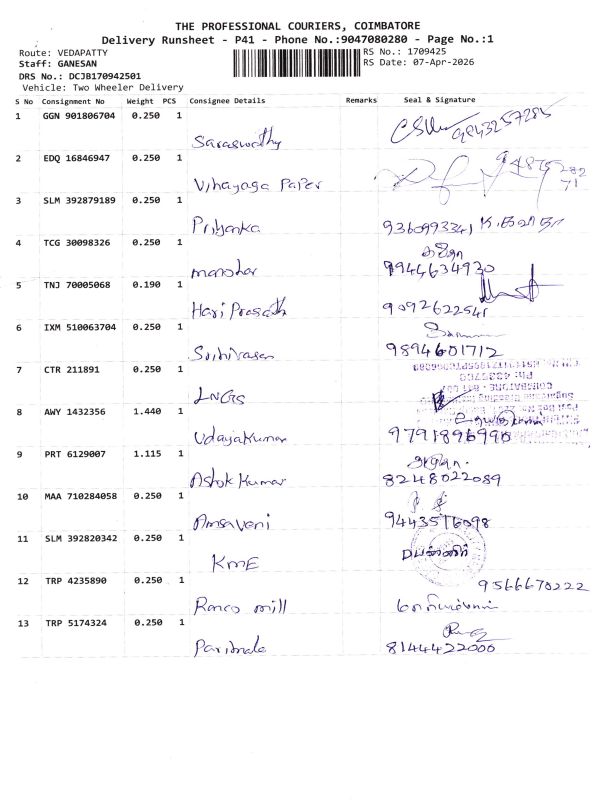 THE PROFESSIONAL COURIERS, COIMBATORE
Delivery Runsheet - P41 - Phone No.:9047080280 - Page No.:1
Route: VEDAPATTY
RS No.: 1709425
Staff: GANESAN
RS Date: 07-Apr-2026
DRS No.: DCJB170942501
Vehicle: Two Wheeler Delivery
S No Consignment No Weight PCS Consignee Details Remarks Seal & Signature
1 GGN 901806704 0.250 1
Saraswathy 9843257285
2 EDQ 16846947 0.250 1
Vihayaga Paper
3 SLM 392879189 0.250 1
Priyanka 9360993341
4 TCG 30098326 0.250 1
manohar 9944634930
5 TNJ 70005068 0.190 1
Hari Prasath 9092622541
6 IXM 510063704 0.250 1
Srinivasan 9894601712
7 CTR 211891 0.250 1
LNGS
8 AWY 1432356 1.440 1
Udayakumar 9791896990
9 PRT 6129007 1.115 1
Ashok Kumar 8248022089
10 MAA 710284058 0.250 1
Amsaveni 9443516098
11 SLM 392820342 0.250 1
KME
12 TRP 4235890 0.250 1
9566670222
Ranco mill
13 TRP 5174324 0.250 1
Parimala 8144422000